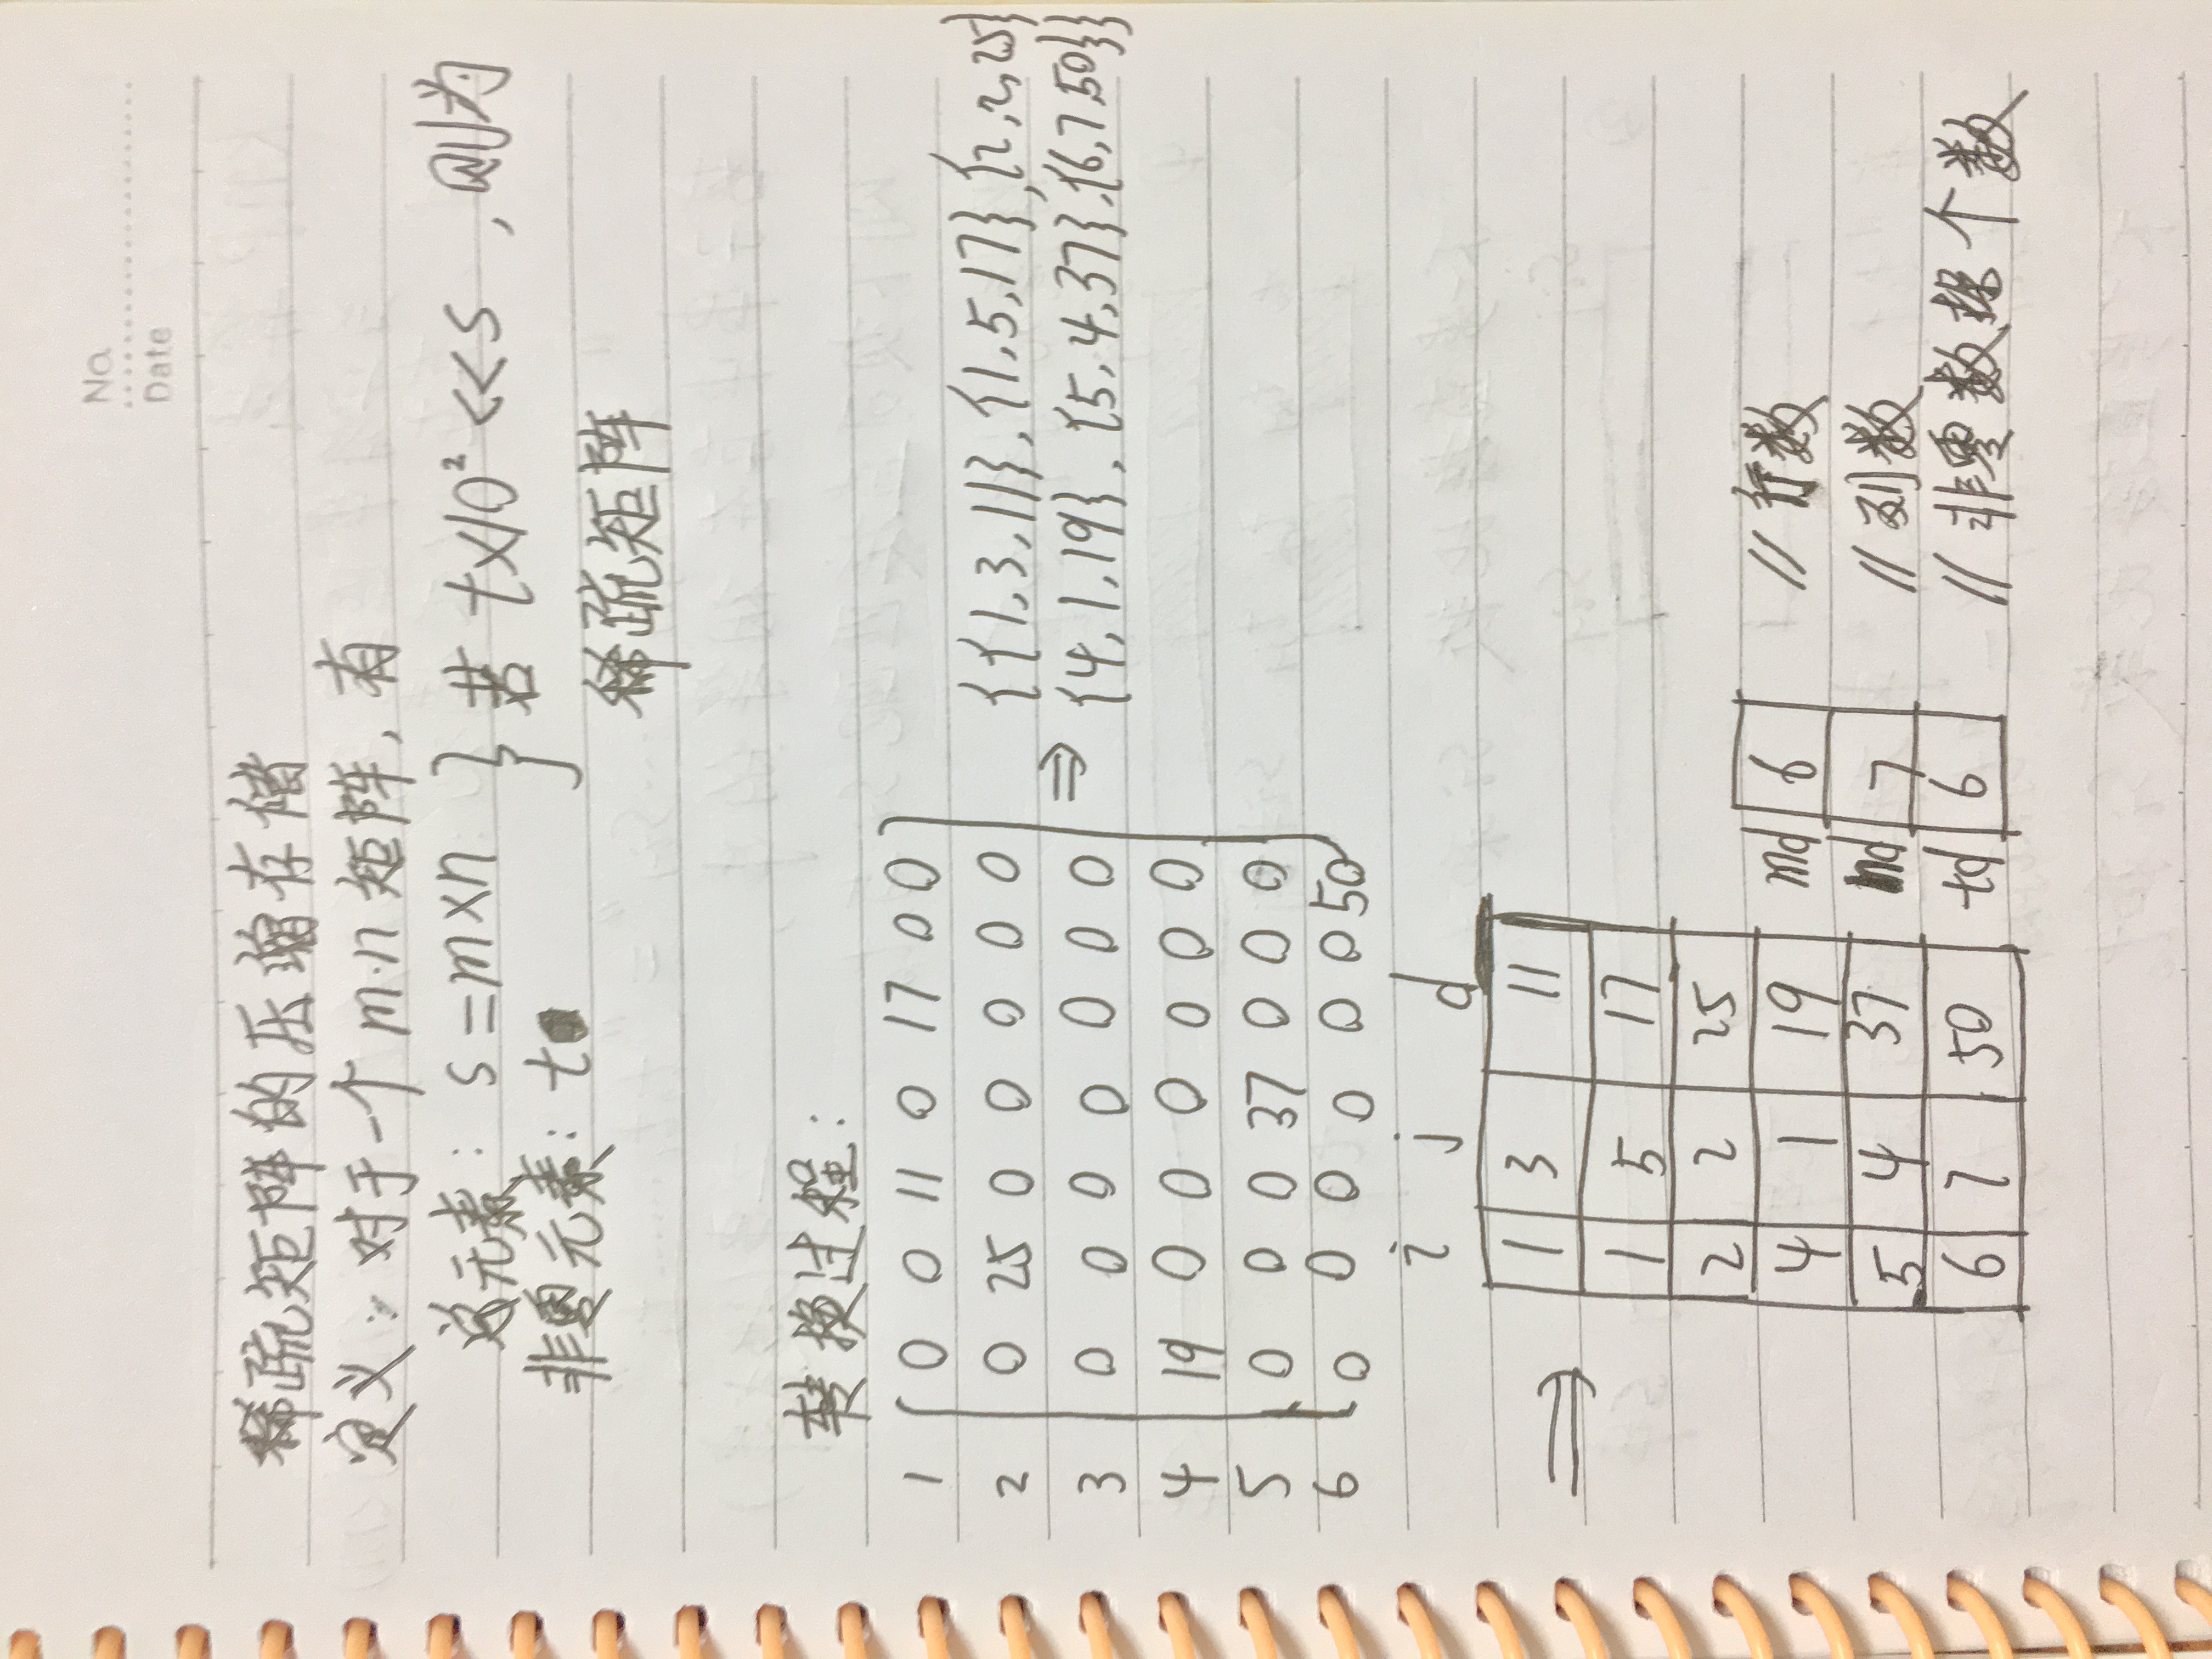 No
Date
稀疏矩阵的压缩存储
定义: 对于一个 m·n 矩阵, 有
总元素: s = m×n } 若 t×10² << s , 则为
非零元素: t
稀疏矩阵
转换过程:
1 0 0 11 0 17 0 0
2 0 25 0 0 0 0 0
3 0 0 0 0 0 0 0
4 19 0 0 0 0 0 0
5 0 0 0 37 0 0 0
6 0 0 0 0 0 0 50
⇒ {{1,3,11},{1,5,17},{2,2,25}
{4,1,19},{5,4,37},{6,7,50}}
i j d
⇒ 1 3 11
1 5 17
2 2 25
4 1 19
5 4 37
6 7 50
md 6 // 行数
nd 7 // 列数
td 6 // 非零数据个数